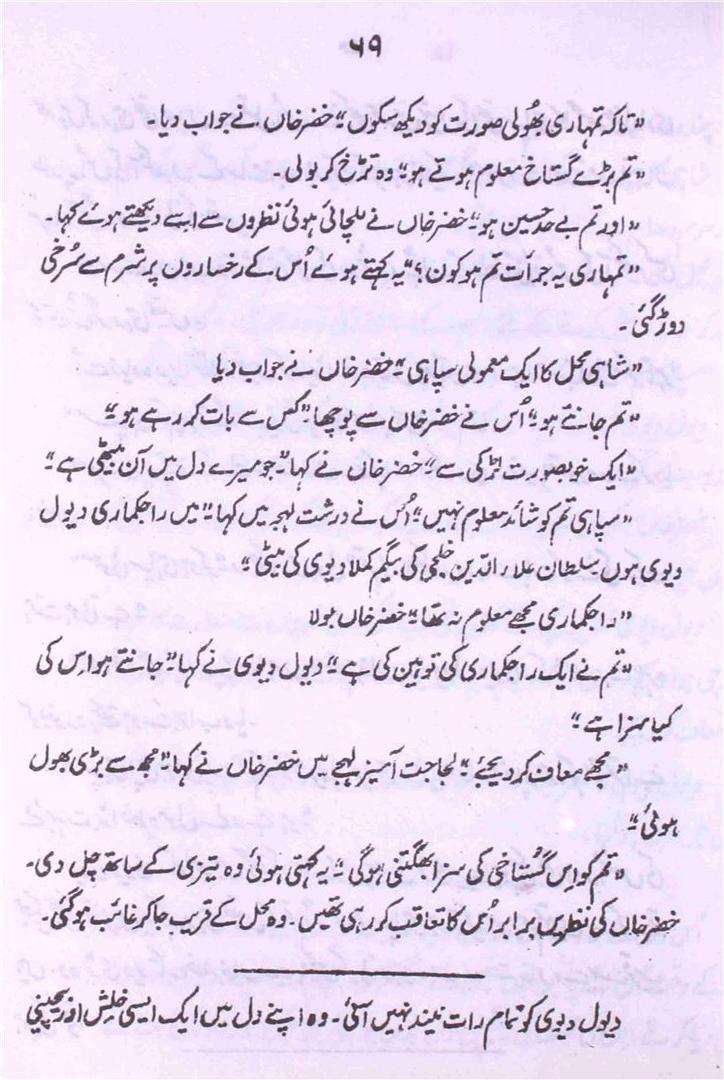 ۶۹
"تاکہ تمہاری بھُولی صورت کو دیکھ سکوں"۔ خضر خاں نے جواب دیا۔
"تم بڑے گستاخ معلوم ہوتے ہو"۔ وہ تڑخ کر بولی۔
"اور تم بے حد حسین ہو"۔ خضر خاں نے للچائی ہوئی نظروں سے اسے دیکھتے ہوئے کہا۔
"تمہاری یہ جرأت تم ہو کون؟" یہ کہتے ہوئے اُس کے رخساروں پر شرم سے سُرخی
دوڑ گئی۔
"شاہی محل کا ایک معمولی سپاہی"۔ خضر خاں نے جواب دیا
"تم جانتے ہو"۔ اُس نے خضر خاں سے پوچھا "کس سے بات کر رہے ہو"۔
"ایک خوبصورت لڑکی سے"۔ خضر خاں نے کہا "جو میرے دل میں آن بیٹھی ہے"۔
"سپاہی تم کو شائد معلوم نہیں"۔ اُس نے درشت لہجہ میں کہا۔ "میں راجکماری دیول
دیوی ہوں سلطان علاء الدّین خلجی کی بیگم کملا دیوی کی بیٹی"۔
"راجکماری مجھے معلوم نہ تھا"۔ خضر خاں بولا
"تم نے ایک راجکماری کی توہین کی ہے"۔ دیول دیوی نے کہا "جانتے ہو اس کی
کیا سزا ہے"۔
"مجھے معاف کر دیجئے"۔ لجاجت آمیز لہجے میں خضر خاں نے کہا "مجھ سے بڑی بھول
ہوئی"۔
"تم کو اِس گُستاخی کی سزا بھگتنی ہوگی"۔ یہ کہتی ہوئی وہ تیزی کے ساتھ چل دی۔
خضر خاں کی نظریں برابر اُس کا تعاقب کر رہی تھیں۔ وہ محل کے قریب جا کر غائب ہو گئی۔
دیول دیوی کو تمام رات نیند نہیں آئی۔ وہ اپنے دل میں ایک ایسی خلش اور بیچینی